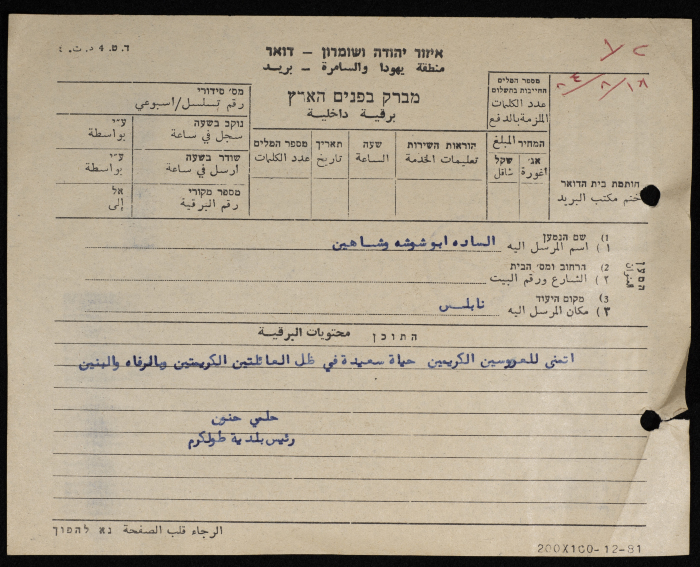 ד.ט. 4 د.ت. ٤
איזור יהודה ושומרון - דואר
منطقة يهودا والسامرة - بريد
מברק בפנים הארץ
برقية داخلية
מספר המלים החייבות בתשלום
عدد الكلمات الملزمة بالدفع
המחיר المبلغ
אג' اغورة
שקל شاقل
חותמת בית הדואר
ختم مكتب البريد
הוראות השירות
تعليمات الخدمة
שעה
الساعة
תאריך
تاريخ
מספר המלים
عدد الكلمات
מס' סידורי
رقم تسلسل/اسبوعي
נוקב בשעה
سجل في ساعة
ע"י
بواسطة
שודר בשעה
ارسل في ساعة
ע"י
بواسطة
מספר מקורי
رقم البرقية
אל
إلى
המען
العنوان
1) שם הנמען
١) اسم المرسل اليه الساده ابو شوشه وشاهين
2) הרחוב ומס' הבית
٢) الشارع ورقم البيت
3) מקום היעוד
٣) مكان المرسل اليه نابلس
התוכן محتويات البرقية
اتمنى للعروسين الكريمين حياة سعيدة في ظل العائلتين الكريمتين وبالرفاه والبنين
حلمي حنون
رئيس بلدية طولكرم
الرجاء قلب الصفحة נא להפוך
200X100-12-81